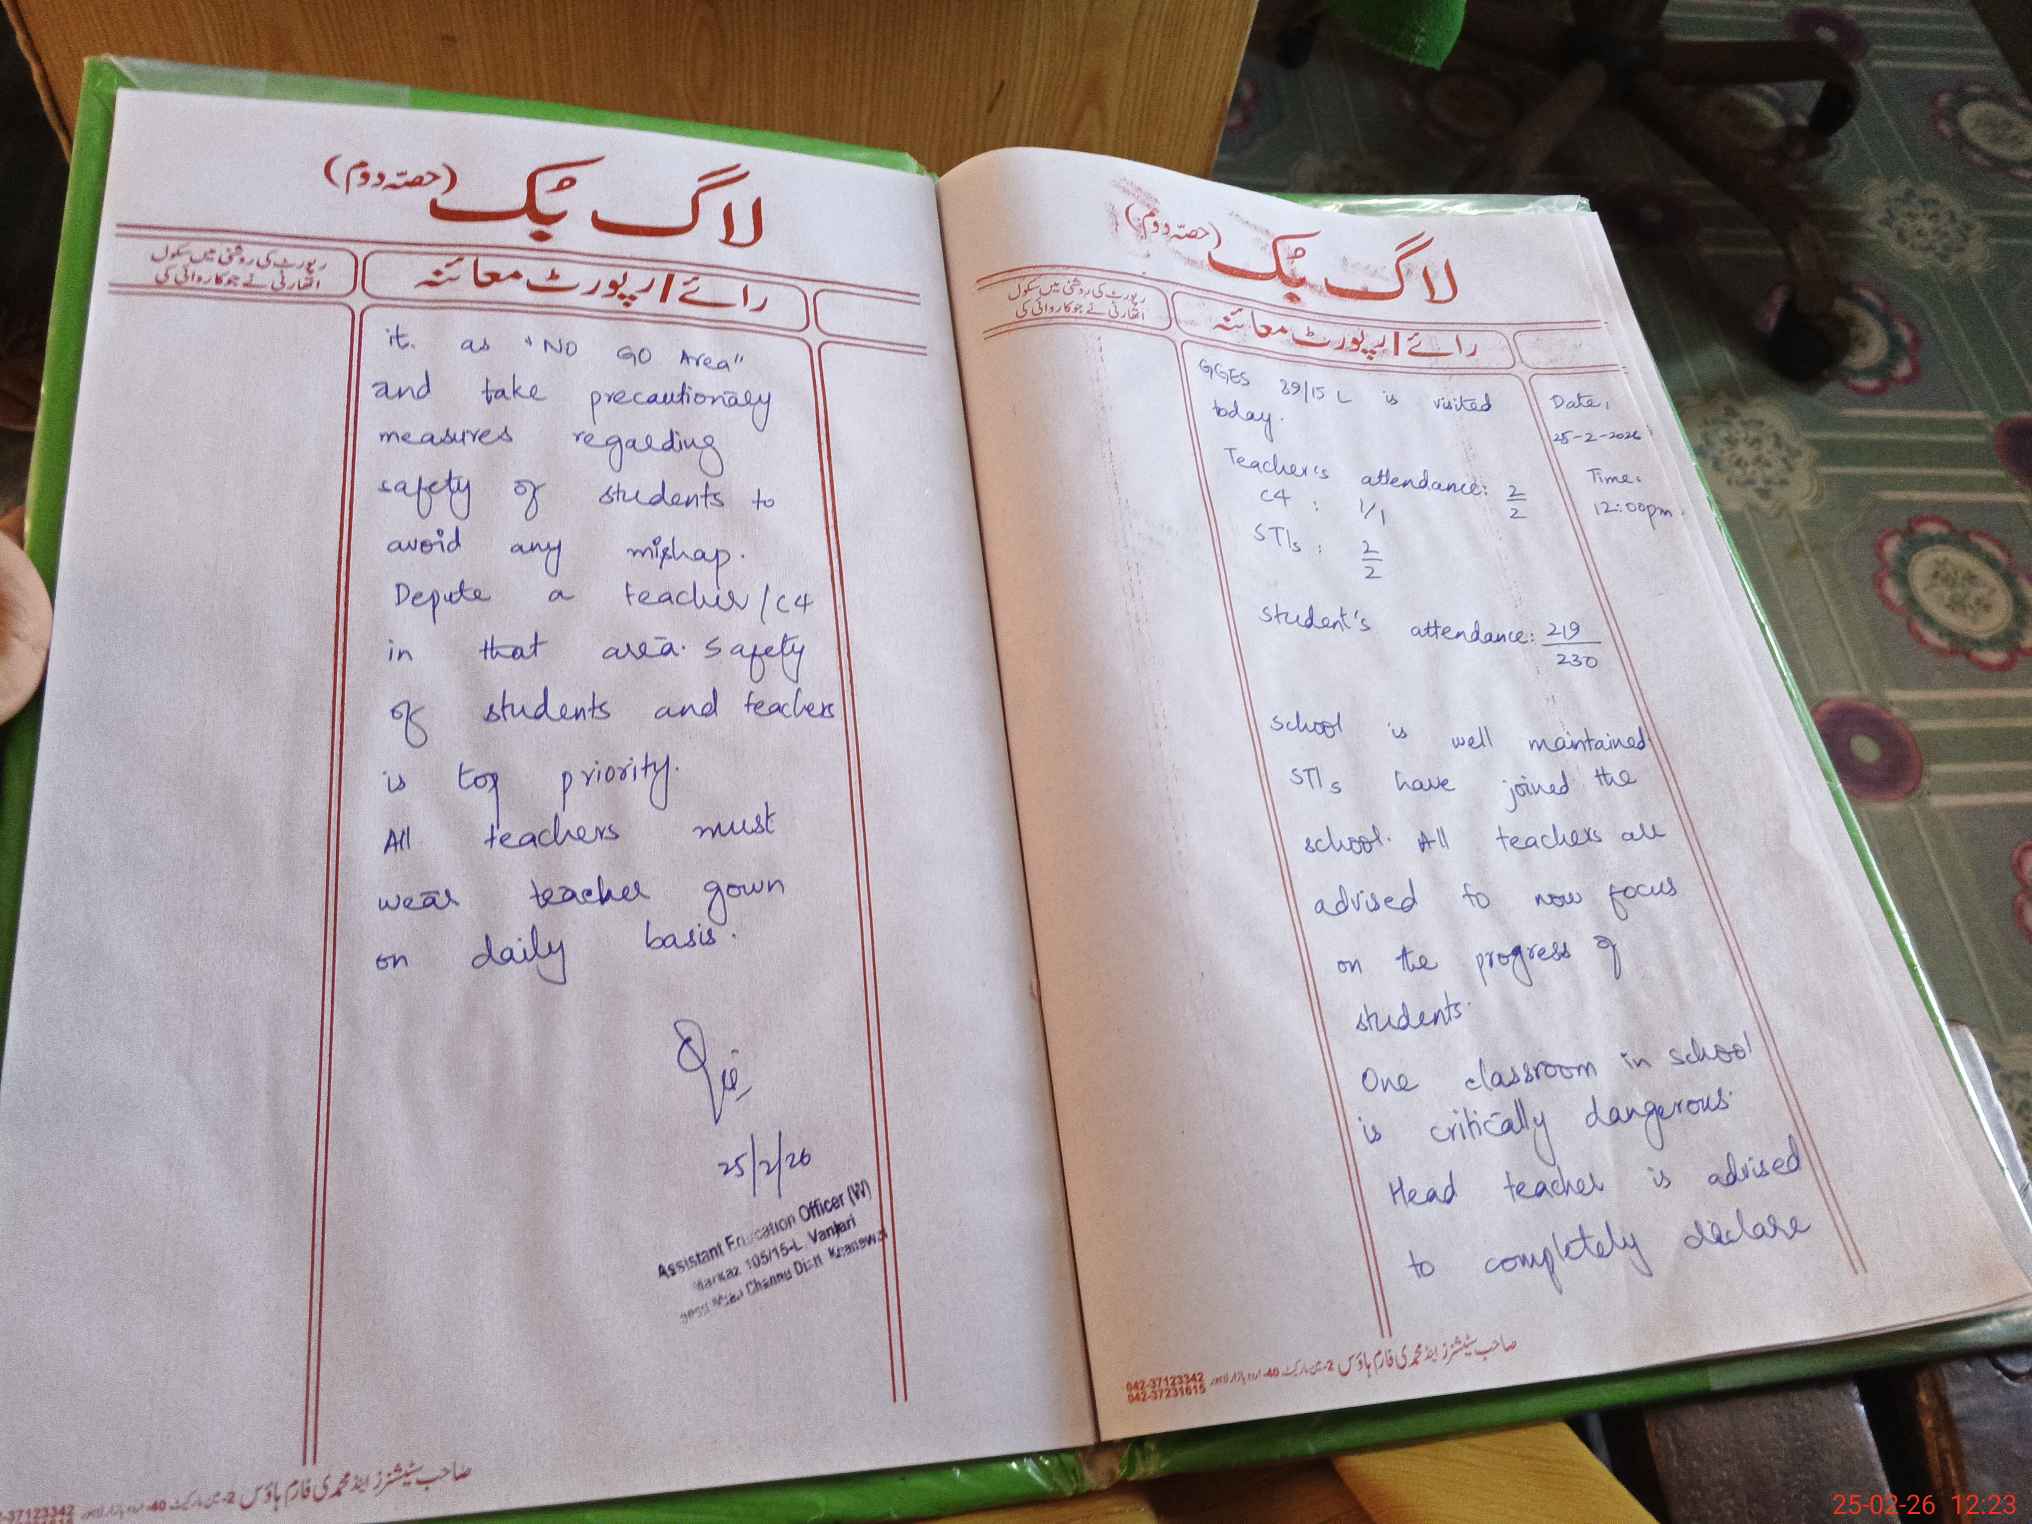 لاگ بُک (حصہ دوم)
رائے / رپورٹ معائنہ
رپورٹ کی روشنی میں سکول
اتھارٹی نے جو کاروائی کی
GGES 39/15 L is visited
today.
Date:
25-2-2026
Time:
12:00pm.
Teacher's attendance: 2/2
C4 : 1/1
STIs : 2/2
Student's attendance: 219/230
School is well maintained
STIs have joined the
school. All teachers are
advised to now focus
on the progress of
students.
One classroom in school
is critically dangerous.
Head teacher is advised
to completely declare
صاحب سٹیشنرز اینڈ محمدی فارم ہاؤس 2-مین مارکیٹ 40-اردو بازار لاہور
042-37123342
042-37231615
لاگ بُک (حصہ دوم)
رائے / رپورٹ معائنہ
رپورٹ کی روشنی میں سکول
اتھارٹی نے جو کاروائی کی
it. as "NO GO Area"
and take precautionary
measures regarding
safety of students to
avoid any mishap.
Depute a teacher/C4
in that area. Safety
of students and teachers
is top priority.
All teachers must
wear teacher gown
on daily basis.
25/2/26
Assistant Education Officer (W)
Markaz 105/15-L Vanjari
Channu Distt Khanewal
صاحب سٹیشنرز اینڈ محمدی فارم ہاؤس 2-مین مارکیٹ 40-اردو بازار لاہور
37123342
25-02-26 12:23